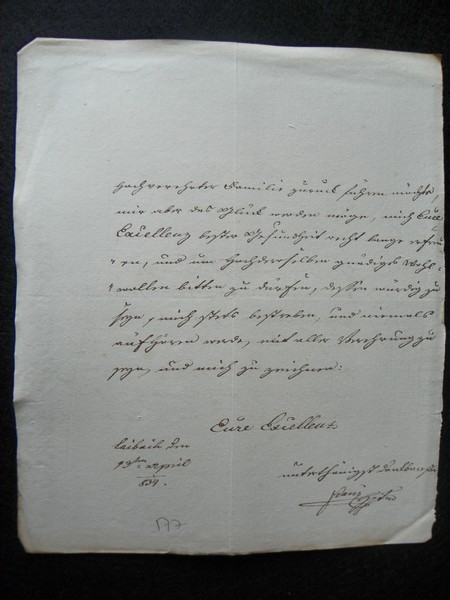 hochverehrter Familie zurück führen möchte,
mir aber das Glück werden möge, mich Eure
Excellenz bester Gesundheit recht lange erfreu
-en, und um Hochderselben gnädiges Wohl-
-wollen bitten zu dürfen, dessen würdig zu
seyn, mich stets bestreben, und niemals
aufhören werde, mit aller Verehrung zu
seyn, und mich zu zeichnen:
Eure Excellenz
Laibach den
April
839.
unterthänigst
Franz
177